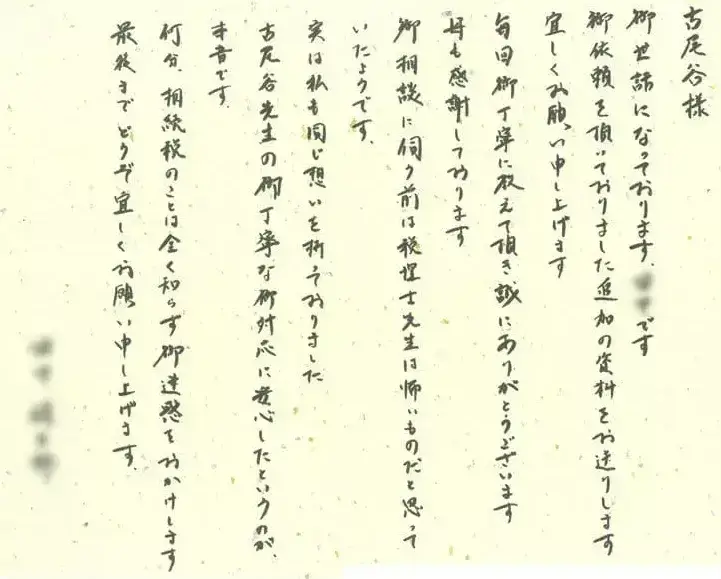 古尾谷様
御世話になっております。です
御依頼を頂いておりました追加の資料をお送りします
宜しくお願い申し上げます
毎回御丁寧に教えて頂き誠にありがとうございます
母も感謝しております
御相談に伺う前は税理士先生は怖いものだと思って
いたようです。
実は私も同じ想いを持っておりました
古尾谷先生の御丁寧な御対応に安心したというのが、
本音です。
何分、相続税のことは全く知らず御迷惑をおかけします
最後までどうぞ宜しくお願い申し上げます。